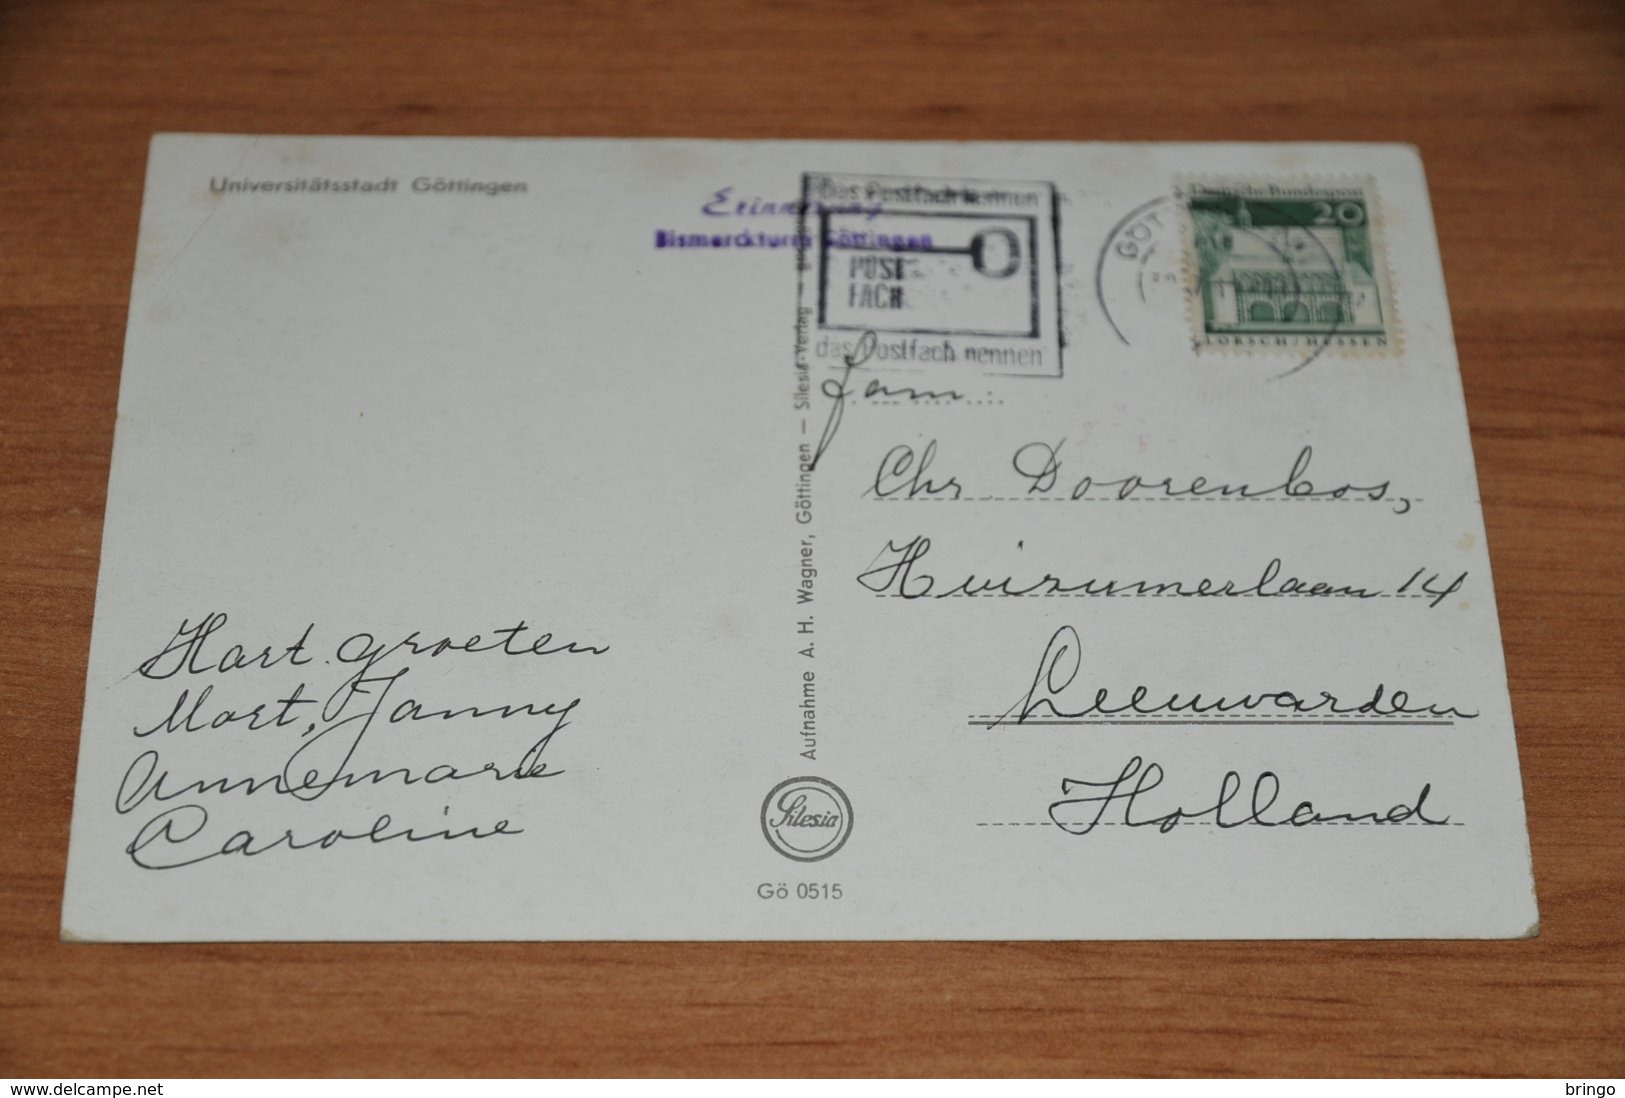 Universitätsstadt Göttingen
Erinnerung
Bismarckturm Göttingen
Das Postfach kennen
POST
FACH
das Postfach nennen
GÖT
Deutsche Bundespost
20
LORSCH/HESSEN
Fam.
Chr. Doorenbos,
Huizumerlaan 14
Leeuwarden
Holland
Hart. groeten
Mart, Janny
Annemarie
Caroline
Aufnahme A. H. Wagner, Göttingen – Silesia-Verlag
Silesia
Gö 0515
www.delcampe.net
bringo